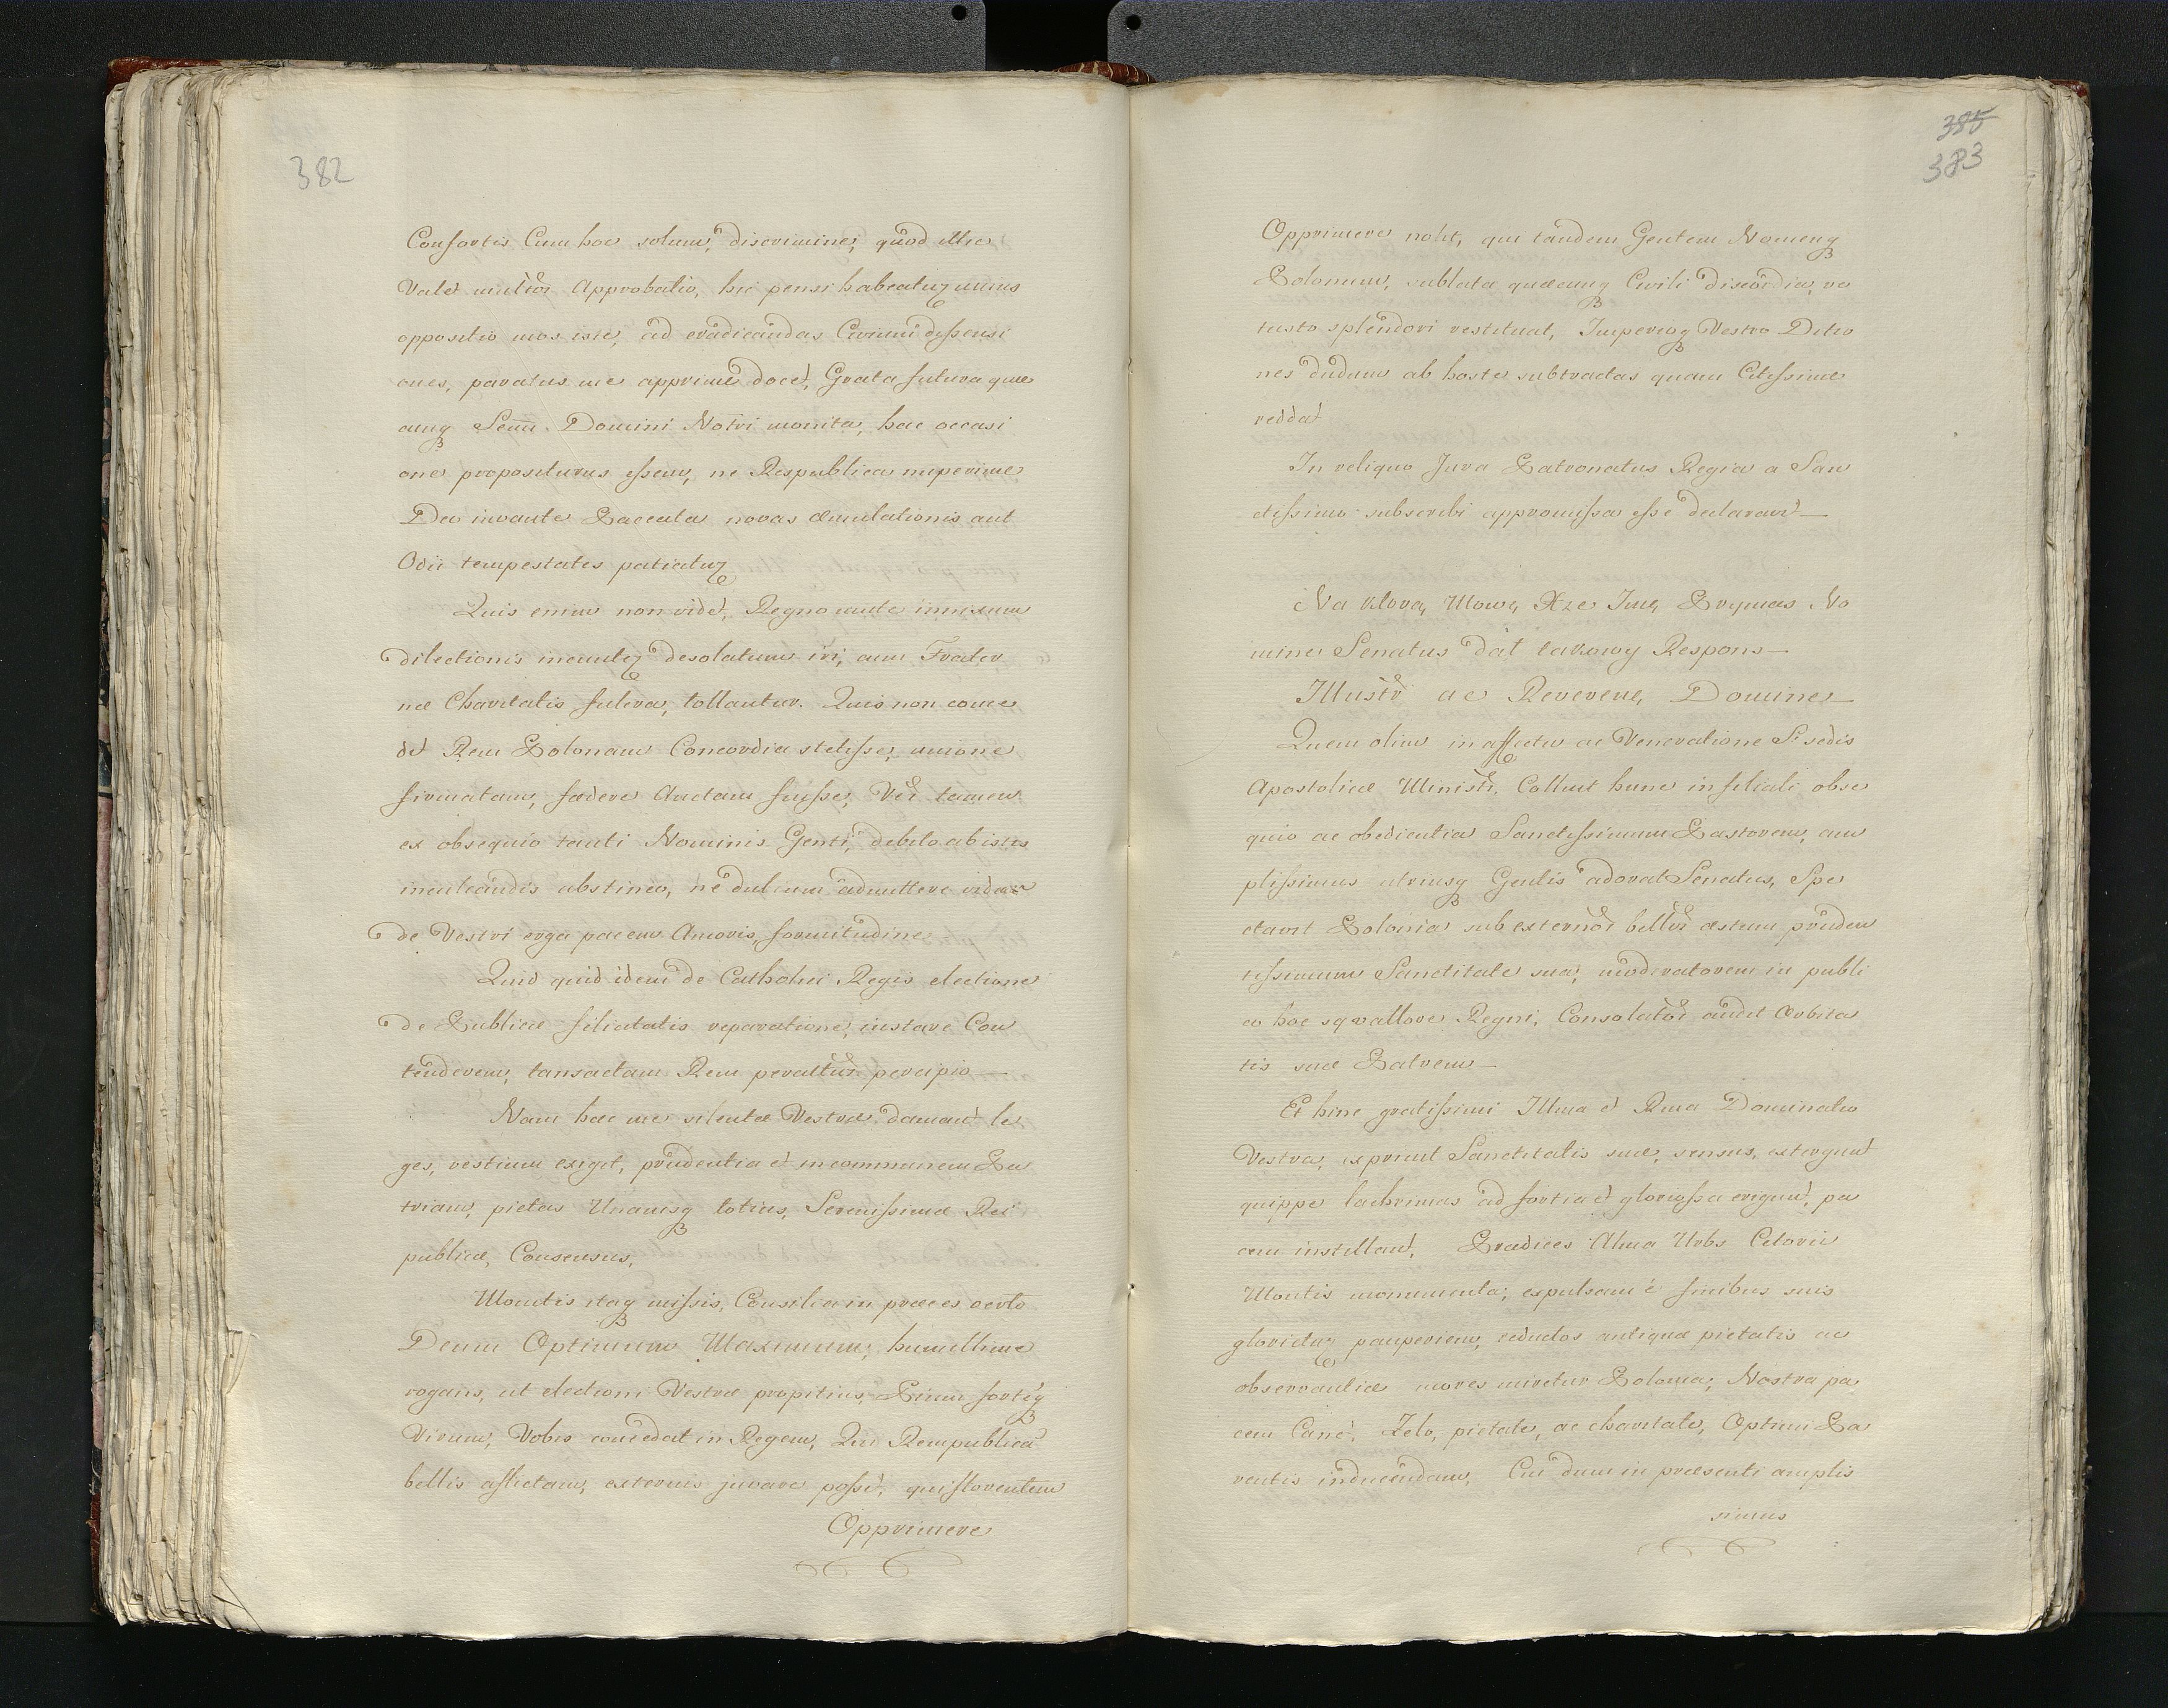 382
Consortis Cum hoc solum, discrimine, quod illic
Valet multor Approbatio, hic pensi habeatur unius
oppositio mos iste, ad eradicandas Civium dissensi
ones, paratus me apprime docet, Grata futura quæ
cunq Semi Domini Nostri monita, hac occasi
one propositurus essem, ne Respublica nuperrime
Deo iuvante Paccata novas æmulationis aut
Odii tempestates patiatur
Quis enim non videt, Regno mutte innixum
dilectionis incuntej desolatum iri, cum Frater
næ Charitatis fulcra, tollantur. Quis non conce
det Rem Polonam Concordia stetisse, unione
firmatam, fædere Auctam fuisse, Ver tamen
ex obsequio tanti Nominis Genti, debito ab istis
inculcandis abstineo, ne dubium admittere videar
de Vestri erga pacem Amoris, formitudine
Quid quid idem de Catholici Regis electione
de Publicæ filicitatis reparatione, instare Con
tenderem, tansactam Rem peraltus percipio —
Nam hæc me silentæ Vestræ damant le
ges, vestium exiget, prudentia et in communem Pa
triam, pietas Unamsq totius, Serenissimæ Rei
publicæ, Consensus,
Montis itaq missis, Consilia in præces verto
Deum Optimum Maximum, humillime
rogans, ut electioni Vestræ propitius, Pium fortéq
Virum, Vobis concedat in Regem, Qui Rempublicã
bellis afflictam, externis juvare posset, qui florentem
Opprimere
385
383
Opprimere nolit, qui tandem Gentem Nomenq
Polonum, sublata quæcunq Civili discordia, ve
tusto splendori restituat, Imperioq Vestro Ditio
nes dudum ab hoste subtractas quam Citissime
reddat
In reliquo Jura Patronatus Regia a San
ctissimo subscribi appromissa esse declaravit —
Na którą Mowę Xże Jmć Prymas No
mine Senatus dał takowy Respons —
Illustr ac Reverene, Domine —
Quem olim in affectu ac Veneratione S. sedis
Apostolicæ Ministr, Colluit hunc in filiali obse
quio ac obedientia Sanctissimum Pastorem, am
plissimus utriusq Gentis adorat Senatus, Spe
ctavit Polonia sub externor bellor æstum pruden
tissimum Sanctitate sua, moderatorem in publi
co hoc sqvallore Regni, Consolator audit Orbita
tis suæ Patrem —
Et hinc gratissimi Illma et Rma Dominatio
Vestra, exprimit Sanctitatis suæ, sensus, extergunt
quippe lachrimas ad fortia et gloriossa erigunt, pa
cem instillant, Prædices Alma Urbs Celorii
Montis monumenta, expulsam é finibus suis
glorietur pauperiem, reduclos antiquæ pietatis ac
observantiæ mores miretur Polonia, Nostra pa
cem Canet, Zelo, pietate, ac charitate, Optimi Pa
rentis inducendam, Cui dum in præsenti amplis
simus